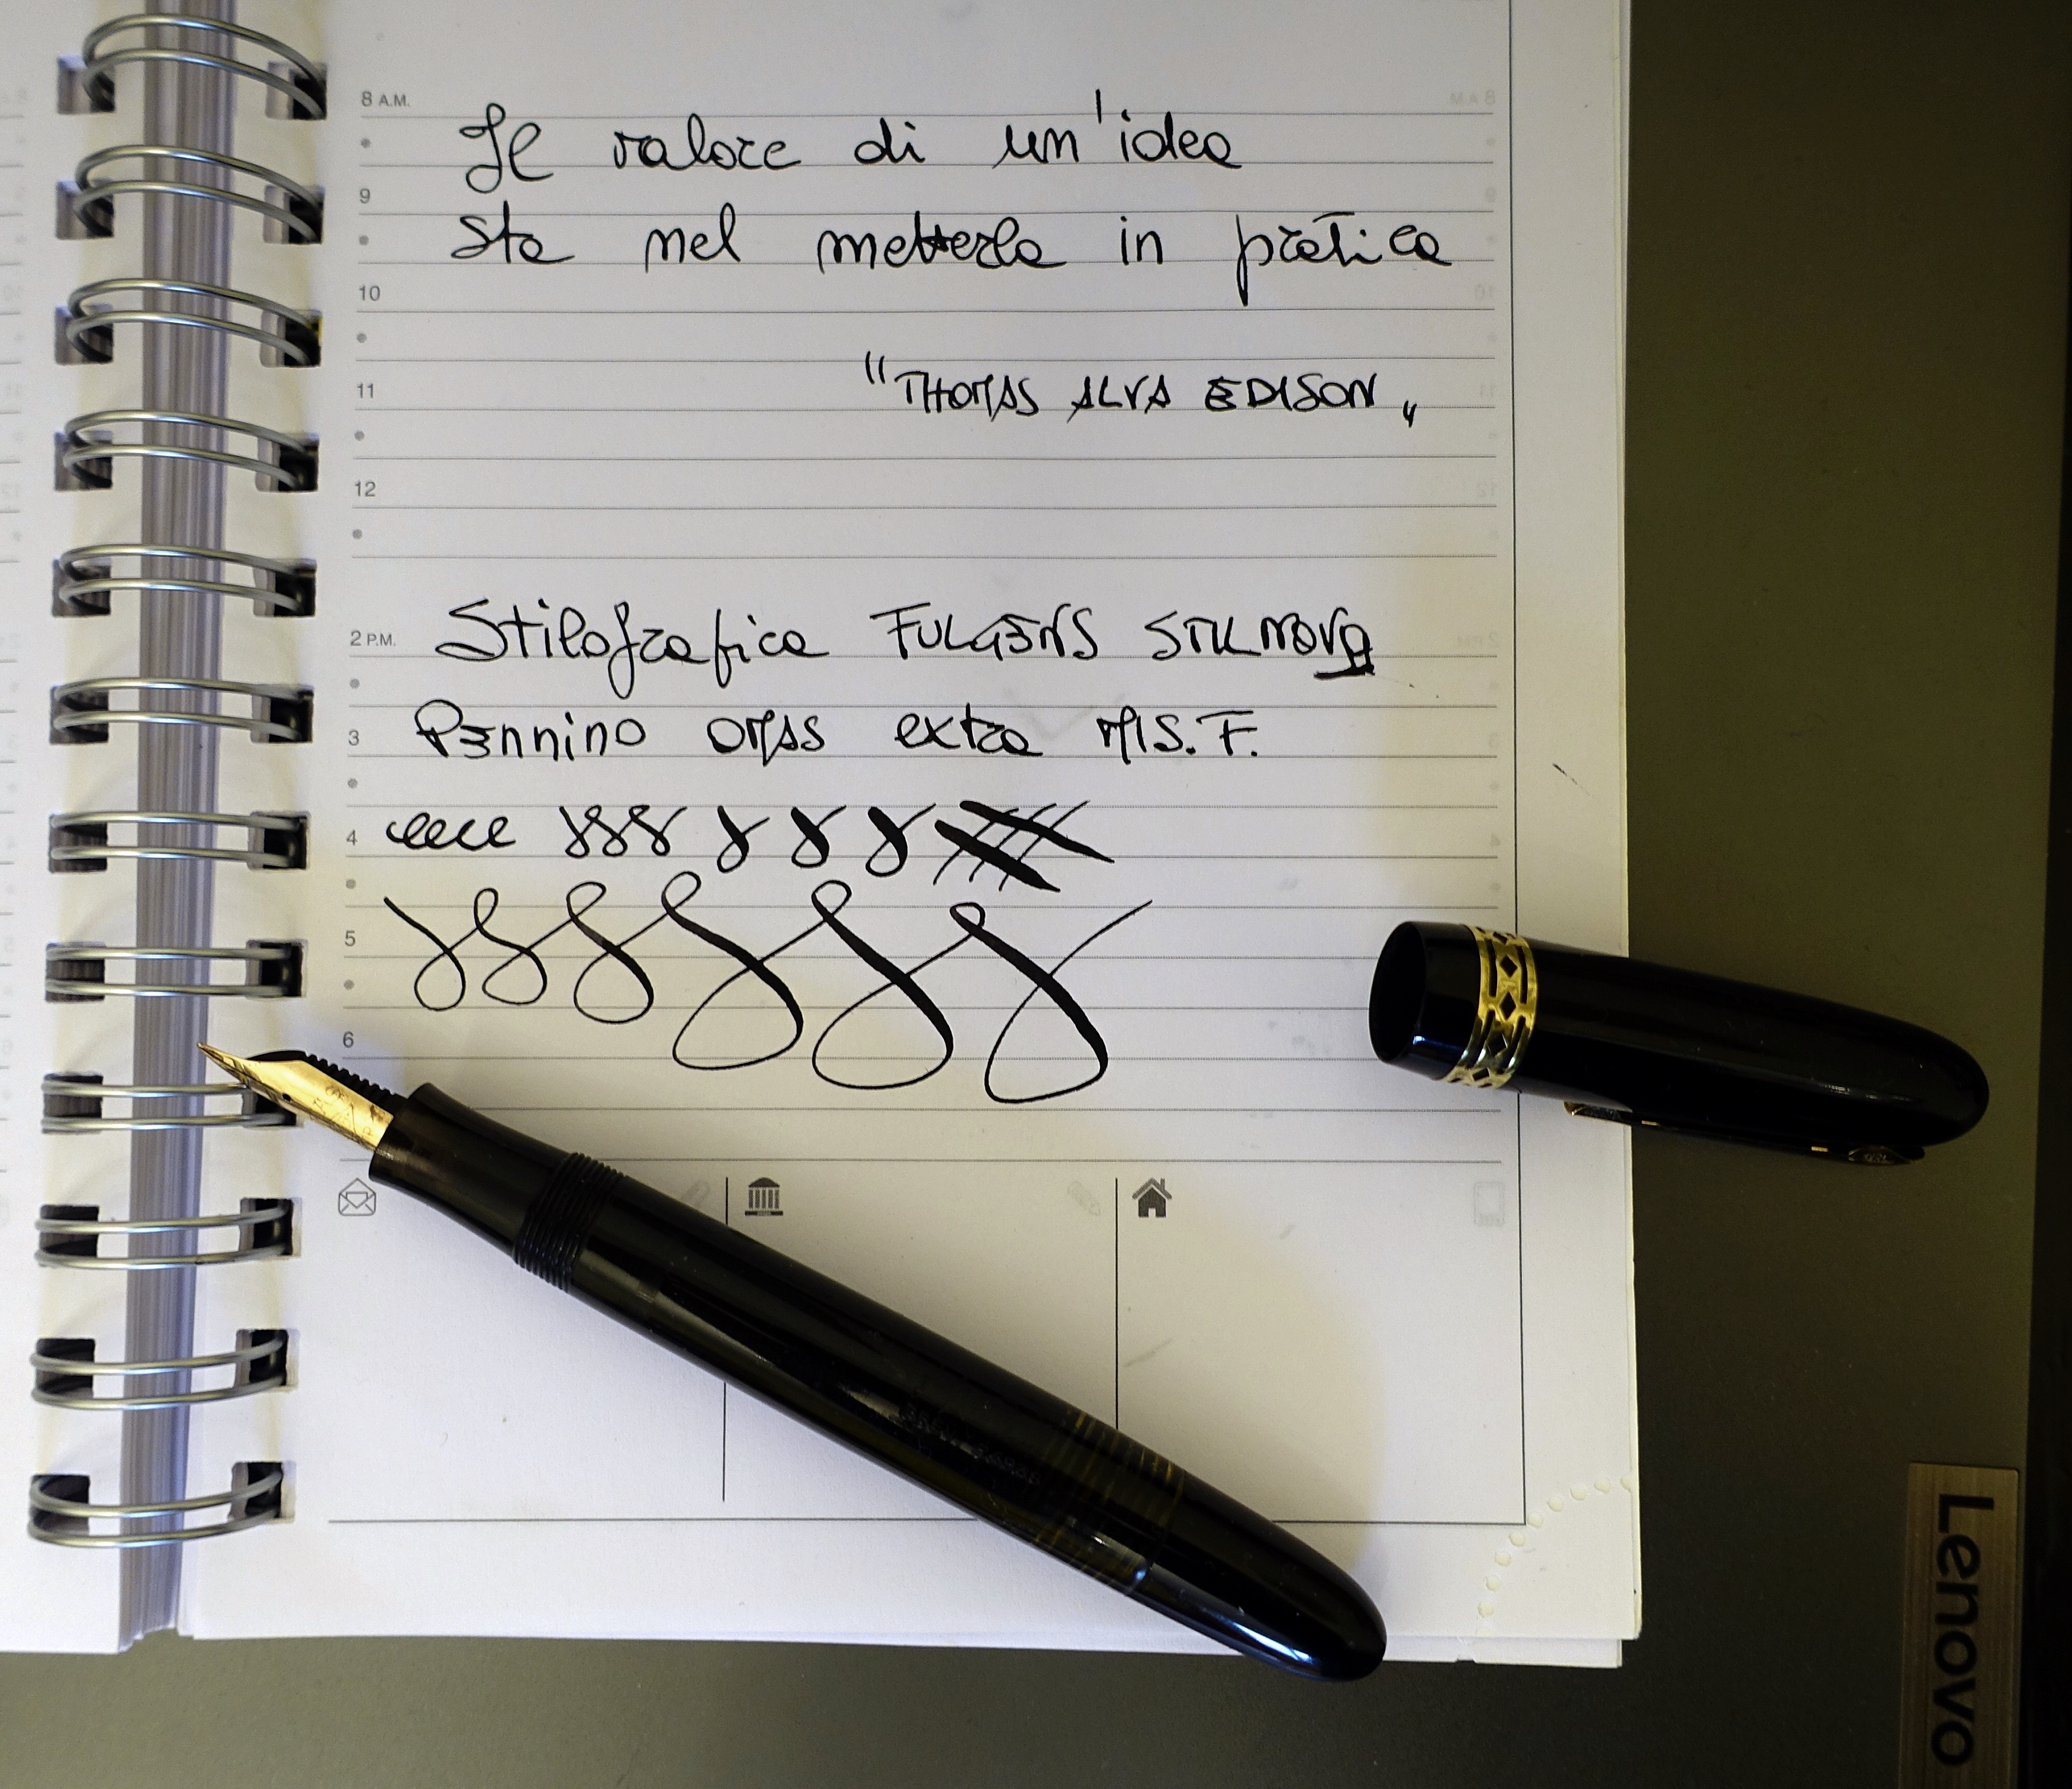 8 A.M.
Il valore di un'idea
9
sta nel metterla in pratica
10
"THOMAS ALVA EDISON„
11
12
2 P.M.
Stilografica FULGENS STILNOVA
3
Pennino OMAS extra MIS. F.
4
5
6
Lenovo